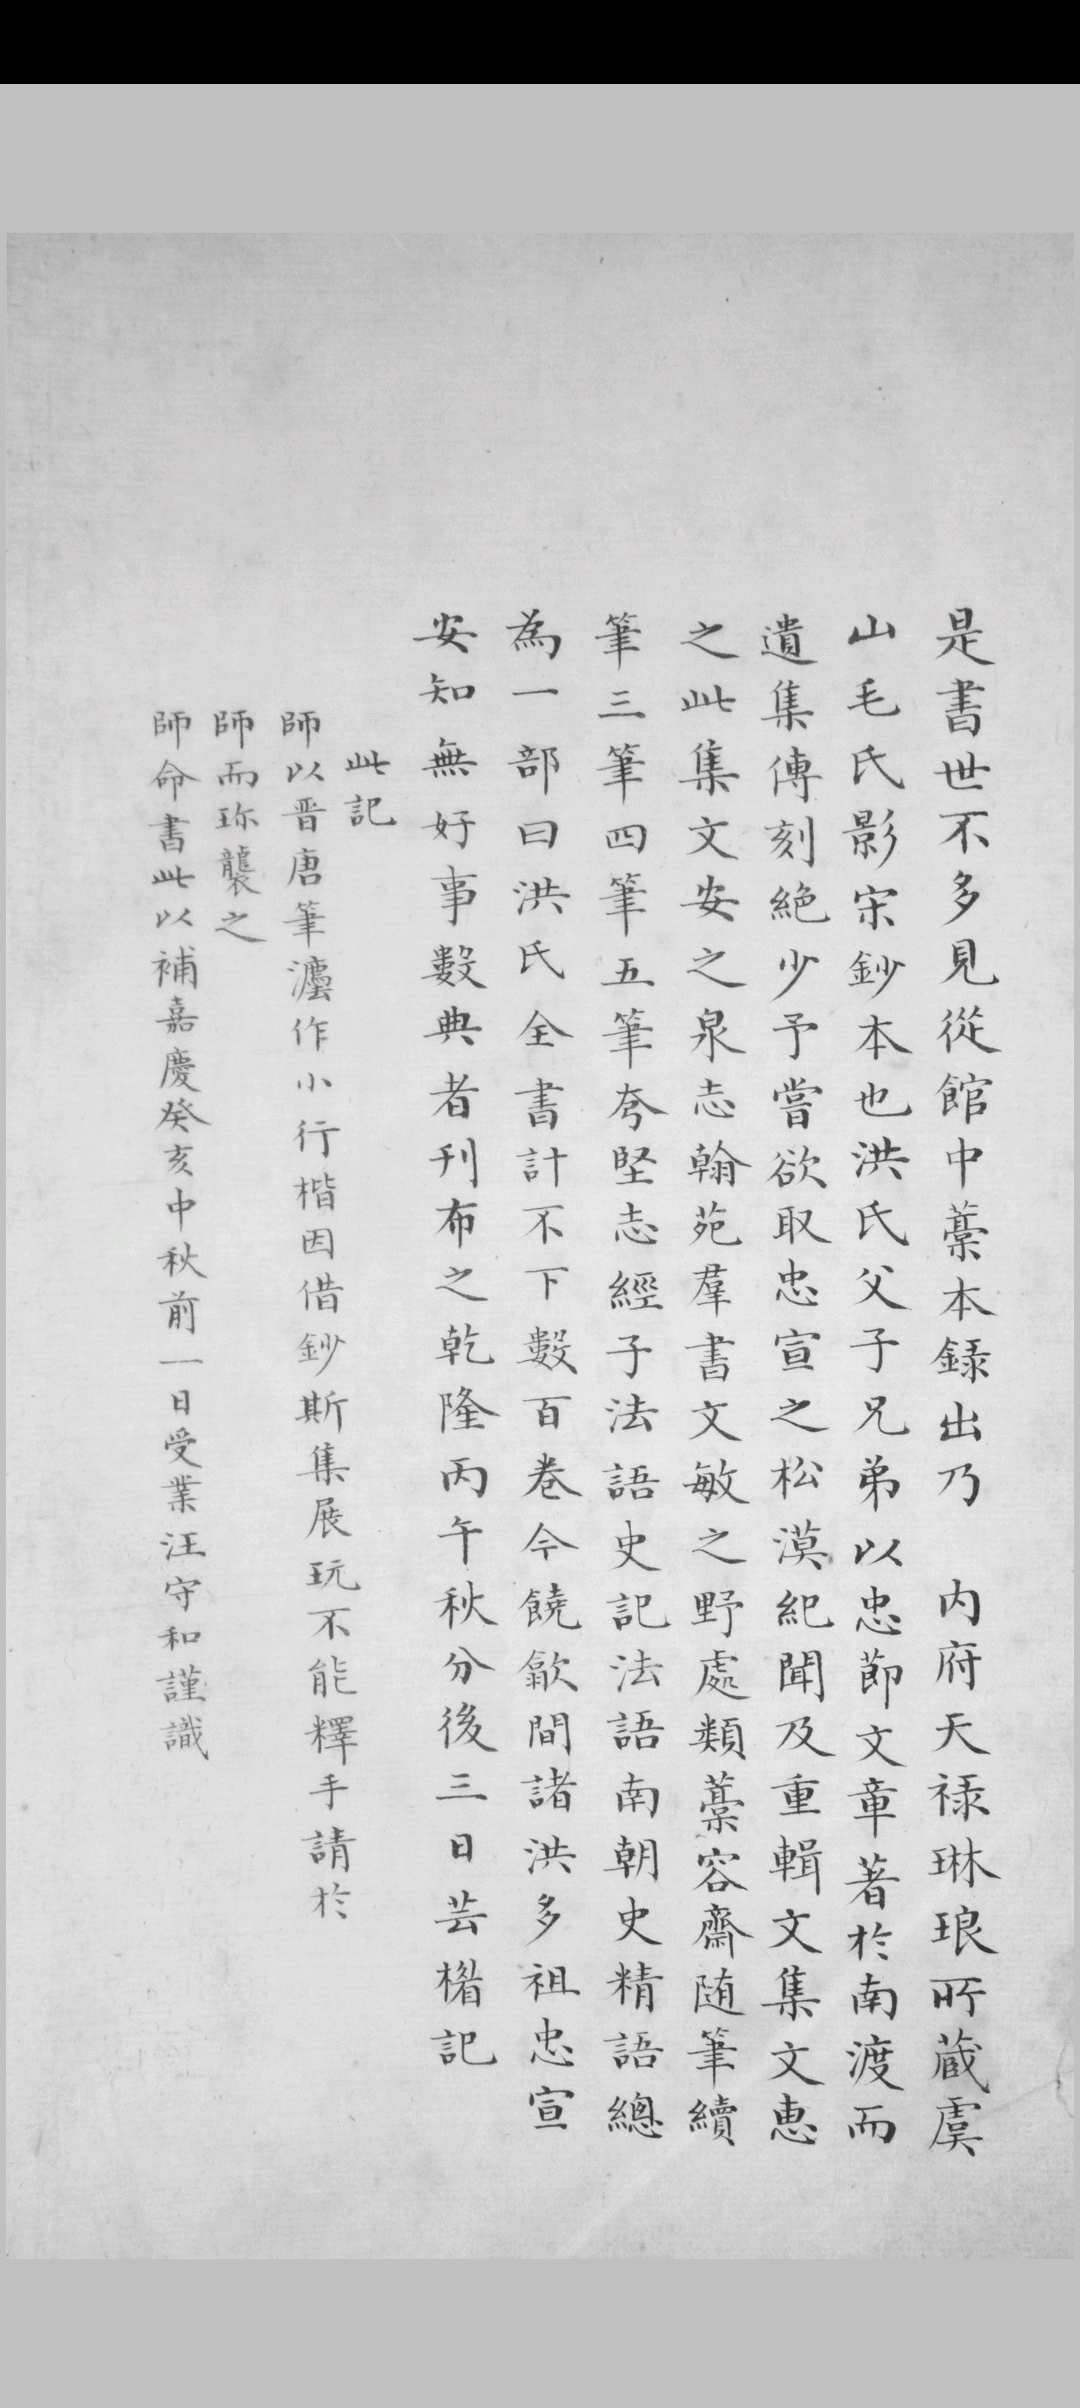 是書世不多見從館中藁本録出乃　内府天禄琳琅所蔵虞
山毛氏影宋鈔本也洪氏父子兄弟以忠節文章著於南渡而
遺集傳刻絶少予嘗欲取忠宣之松漠紀聞及重輯文集文惠
之此集文安之泉志翰苑羣書文敏之野處類藁容齋随筆續
筆三筆四筆五筆夸堅志經子法語史記法語南朝史精語總
為一部曰洪氏全書計不下數百卷今饒歙間諸洪多祖忠宣
安知無好事數典者刋布之乾隆丙午秋分後三日芸楣記
此記
師以晋唐筆灋作小行楷因借鈔斯集展玩不能釋手請於
師而珎襲之
師命書此以補嘉慶癸亥中秋前一日受業汪守和謹識